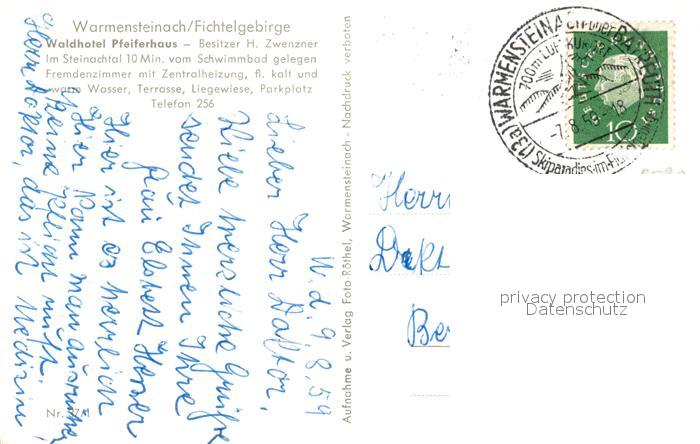 Warmensteinach/Fichtelgebirge
Waldhotel Pfeiferhaus – Besitzer H. Zwenzner
Im Steinachtal 10 Min. vom Schwimmbad gelegen
Fremdenzimmer mit Zentralheizung, fl. kalt und
warm Wasser, Terrasse, Liegewiese, Parkplatz
Telefon 256
Nr. 37/1
Aufnahme u. Verlag Foto-Röthel, Warmensteinach - Nachdruck verboten
W. d. 9. 8. 59
Lieber Herr Doktor,
Viele herzliche Grüße
sendet Ihnen Ihre
Frau Elsbett
Hier ist es herrlich
Hier kann man ausruhen
keine
Herr Doktor, das ist Medizin
Herrn
Dokt
Be
(13a) WARMENSTEINACH über BAYREUTH
700m LUFTKURORT
-7.8.59-18
Skiparadies-im-Fi
DEUTSCHE
10
privacy protection
Datenschutz